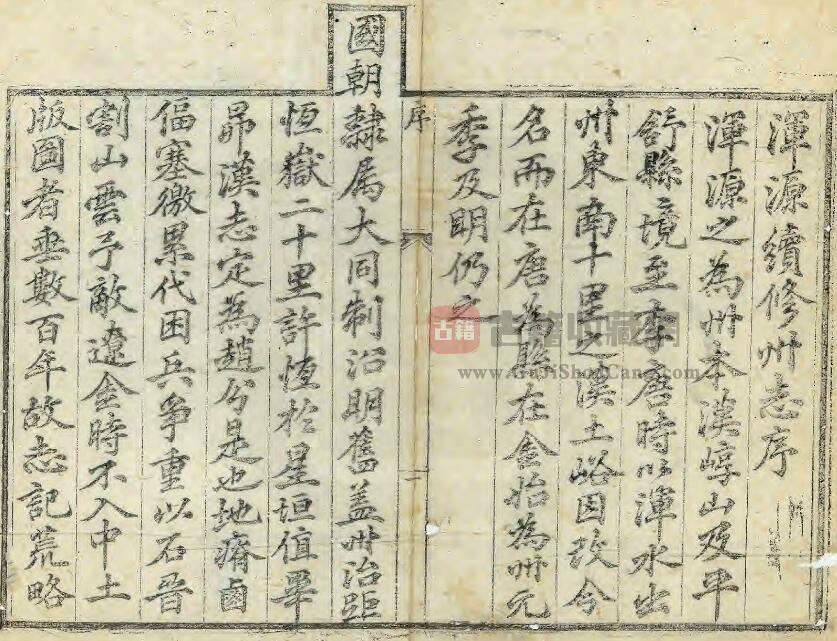 渾源續修州志序
渾源之為州本漢崞山及平
舒縣境至李唐時以渾水出
州東南十里之漢土峪因改今
名而在唐為縣在金始為州元
季及明仍之
序
一
國朝隸属大同制沿明舊盖州治距
恆嶽二十里許恆於星垣值畢
昴漢志定為趙分是也地瘠鹵
偪塞徼累代困兵争重以石晉
割山雲予敵遼金時不入中土
版圖者垂數百年故志記荒略
古籍
古籍收藏網
www.GuJiShouCang.com